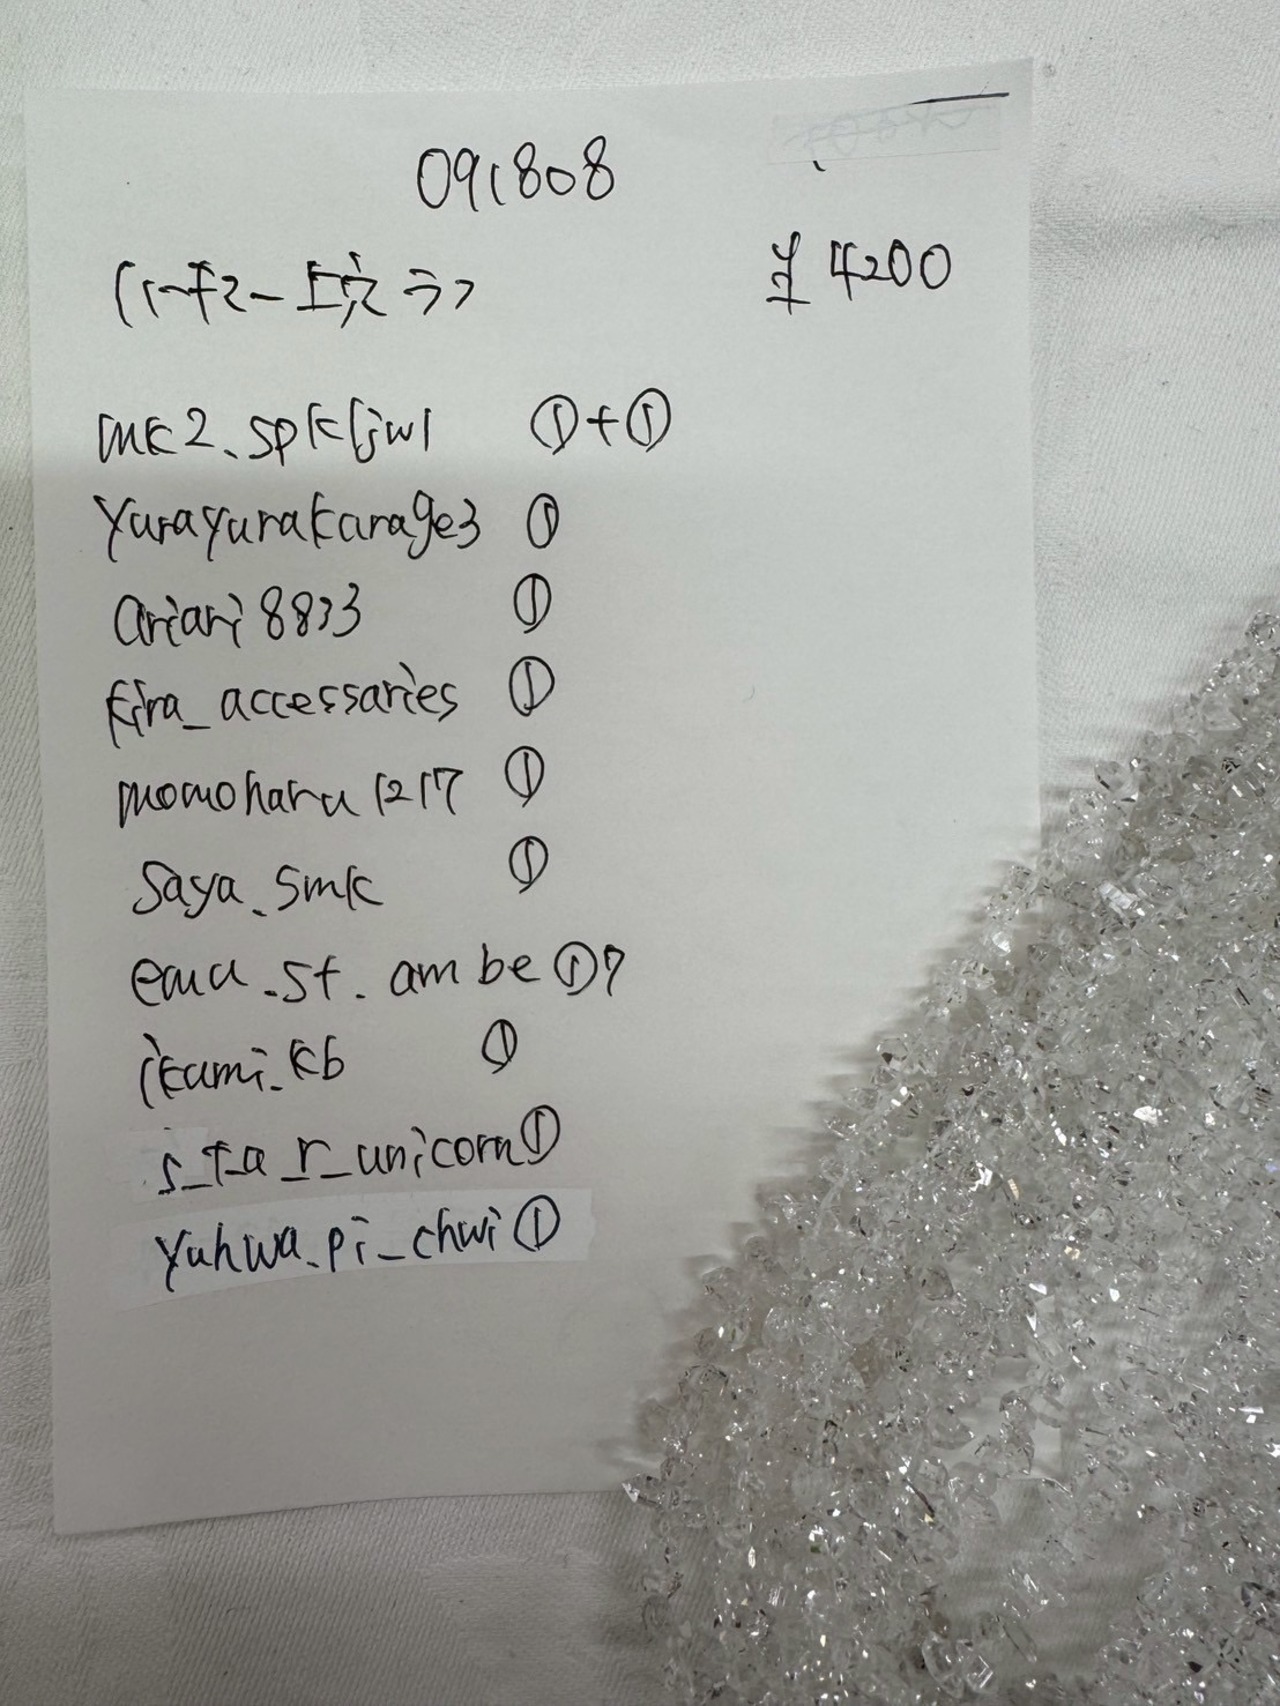 091808
¥ 4200
mk2.spkljwl ①+①
yurayurakarage3 ①
ariari8833 ①
kira_accessaries ①
momoharu1217 ①
saya.smk ①
emu.st.ambe ①?
ikumi.kb ①
s_t_a_r_unicorn ①
yuhwa.pi_chwi ①